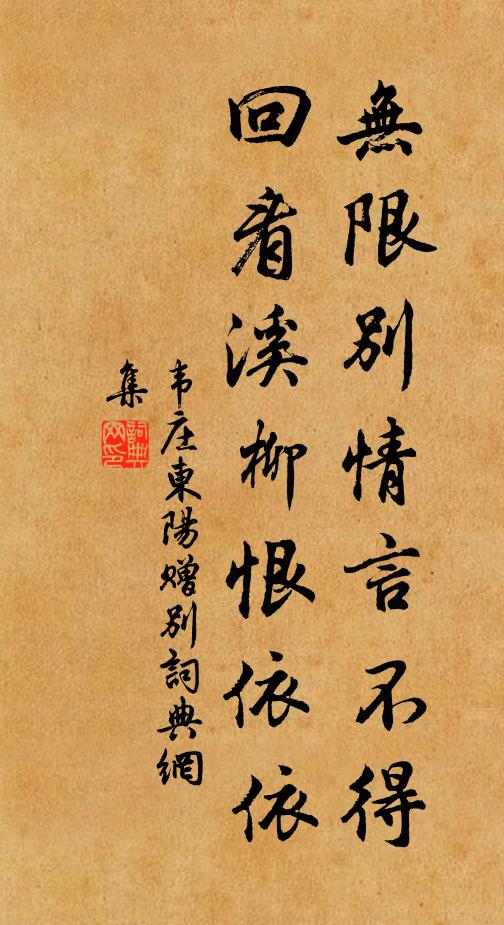 無限別情言不得
回看溪柳恨依依
韦庄東陽贈別詞典網
集
詞典網印